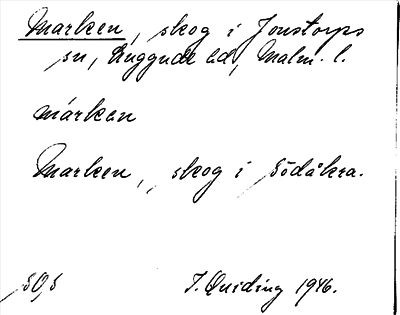 Marken, skog i Jonstorps
sn, Luggude hd, Malm. l.
márkan
Marken, skog i Södåkra.
50,5
J. Quiding 1946.